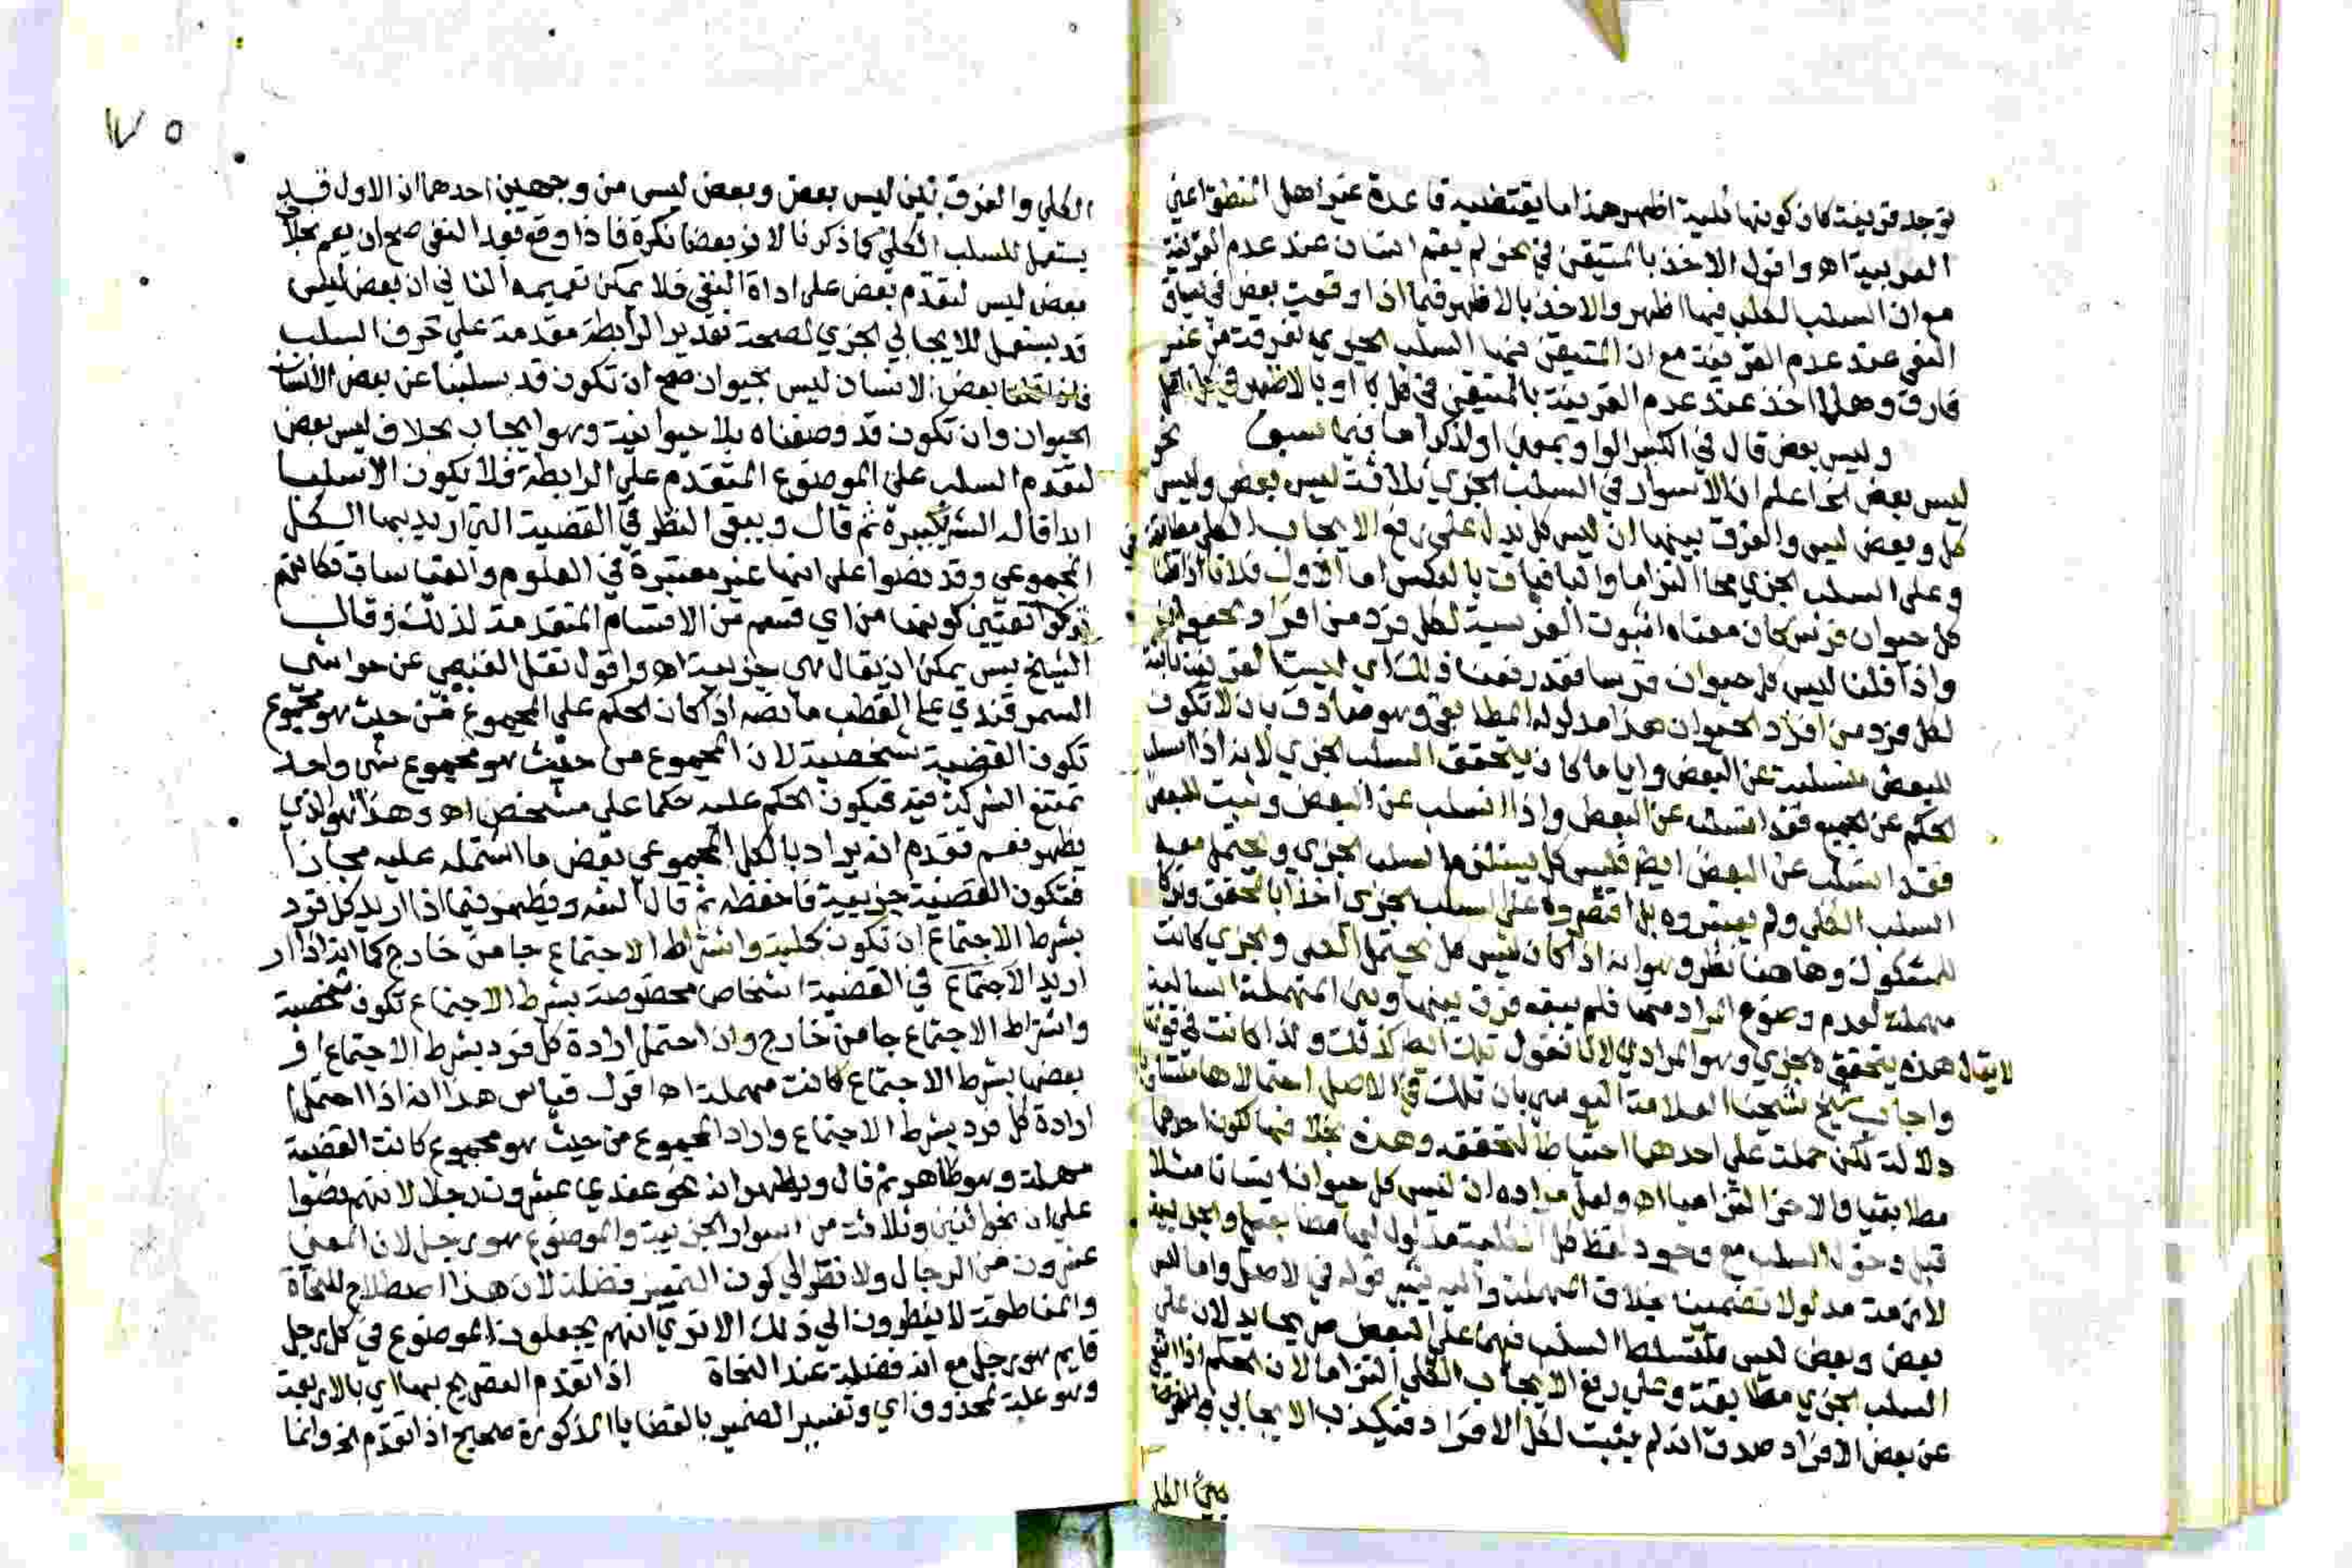 توجد قرينة كان كونها كلية اظهر هذا ما يقتضيه قاعدة غير اهل المنطق اعني
العربية اه واقول الاخذ بالمتيقن في نحو لم يقم انسان عند عدم القرينة
مع ان السلب الكلي فيها اظهر والاخذ بالاظهر فيما اذا وقعت بعض في سياق
النفي عند عدم القرينة مع ان المتيقن فيها السلب الجزي تفرقة من غير
فارق وهلا اخذ عند عدم القرينة بالمتيقن في كل او بالاظهر في كل
وليس بعض قال في الكبير الواو بمعنى او لذكر اما فيما سبق نحو
ليس بعض الخ اعلم ان الاسوار في السلب الجزي ثلاثة ليس بعض وليس
كل وبعض ليس والفرق بينها ان ليس كل يدل على رفع الايجاب الكلي مطابقة
وعلى السلب الجزي التزاما والباقيات بالعكس اما الاول فلانا اذا قلنا
كل حيوان فرس كان معناه اثبوت الفرسية لكل فرد من افراد الحيوان
واذا قلنا ليس كل حيوان فرسا فقد رفعنا ذلك اي ليست الفرسية ثابتة
لكل فرد من افراد الحيوان هذا مدلوله المطابقي وهو صادق بان لا تكون
للبعض منسلبة عن البعض وايا ما كان يتحقق السلب الجزي لانه اذا انسلب
الحكم عن الجميع فقد انسلب عن البعض واذا انسلب عن البعض وثبت للبعض
فقد انسلب عن البعض ايضا فليس كل يستلزم السلب الجزي ويحتمل معه
السلب الكلي ولم يعتبروه بل اقتصروا على السلب الجزي اخذا بالمحقق وتركا
للمشكوك وهاهنا نظر وهو انه اذا كان ليس كل يحتمل الكلي والجزي كانت
مهملة لعدم وضوح المراد منها فلم يبقه فرق بينها وبين المهملة السالبة
لا يقال هذه يتحقق الجزي وهو المراد لانا نقول تلك ايضا كذلك ولذا كانت في قوة
واجاب شيخ شيخنا العلامة اليوسي بان تلك في الاصل احتمالاها متساويان
دلالة لكن حملت على احدهما احتياطا لتحققه وهذه بخلافها لكون احدهما
مطابقيا والاخر التزاميا اه ولعل مراده ان ليس كل حيوان انسانا مثلا
قبل دخول السلب مع وجود لفظ كل الكلية مدلول لها مطابقة والجزيية
لازمة مدلولا تضمنيا بخلاف المهملة واليه يشير قوله في الاصل واما ليس
بعض وبعض ليس فلتسلط السلب فيهما على البعض صريحا يدلان على
السلب الجزي مطابقة وعلى رفع الايجاب الكلي التزاما لان الحكم اذا انتفى
عن بعض الافراد صدق انه لم يثبت لكل الافراد فيكذب الايجاب
الكلي والفرق بين ليس بعض وبعض ليس من وجهين احدهما ان الاول قد
يستعمل للسلب الكلي كما ذكرنا لان بعضا نكرة فاذا وقع بعد النفي صح ان يعم بخلاف
بعض ليس لتقدم بعض على اداة النفي فلا يمكن تعميمه الثاني ان بعض ليس
قد يستعمل للايجاب الجزي لصحة تقدير الرابطة مقدمة على حرف السلب
فاذا قلنا بعض الانسان ليس بحيوان صح ان تكون قد سلبنا عن بعض الانسان
الحيوان وان تكون قد وصفناه بلا حيوانية وهو ايجاب بخلاف ليس بعض
لتقدم السلب على الموضوع المتقدم على الرابطة فلا يكون الا سلبا
ثم قال ويبقى النظر في القضية التي اريد بها الكل
المجموعي وقد نصوا على انها غير معتبرة في العلوم والقياسات فكانهم
تركوا تعيين كونها من اي قسم من الاقسام المتقدمة لذلك وقال
الشيخ يس يمكن ان يقال هي جزيية اه واقول نقل الغنيمي عن حواشي
السمرقندي على القطب ما نصه اذا كان الحكم على المجموع من حيث هو مجموع
تكون القضية شخصية لان المجموع من حيث هو مجموع شي واحد
تمتنع الشركة فيه فيكون الحكم عليه حكما على مشخص اه وهذا هو الذي
يظهر نعم تقدم انه يراد بالكل المجموعي بعض ما اشتمل عليه مجازا
فتكون القضية جزيية فاحفظه ثم قال ويظهر فيما اذا اريد كل فرد
بشرط الاجتماع ان تكون كلية واشتراط الاجتماع جا من خارج كما انه اذا
اريد الاجتماع في القضية اشخاص مخصوصة بشرط الاجتماع تكون شخصية
واشتراط الاجتماع جا من خارج وان احتمل ارادة كل فرد بشرط الاجتماع او
بعضها بشرط الاجتماع كانت مهملة اه اقول قياس هذا انه اذا احتمل
ارادة كل فرد بشرط الاجتماع واراد المجموع من حيث هو مجموع كانت القضية
مهملة وهو ظاهر ثم قال ويظهر ان نحو عندي عشرون رجلا لانهم نصوا
على ان نحو اثنين وثلاثة من اسوار الجزيية والموضوع هو رجل لان المعنى
عشرون من الرجال ولا نظر الى كون التمييز فضلة لان هذا اصطلاح للنحاة
والمناطقة لا ينظرون الى ذلك الا ترى انهم يجعلون الموضوع في كل رجل
قايم هو رجل مع انه فضلة عند النحاة اذا تقدم التصريح بها اي بالاربعة
وهو علة لمحذوف اي وتفسير الضمير بالقضايا المذكورة صحيح اذا تقدم الخ وانما